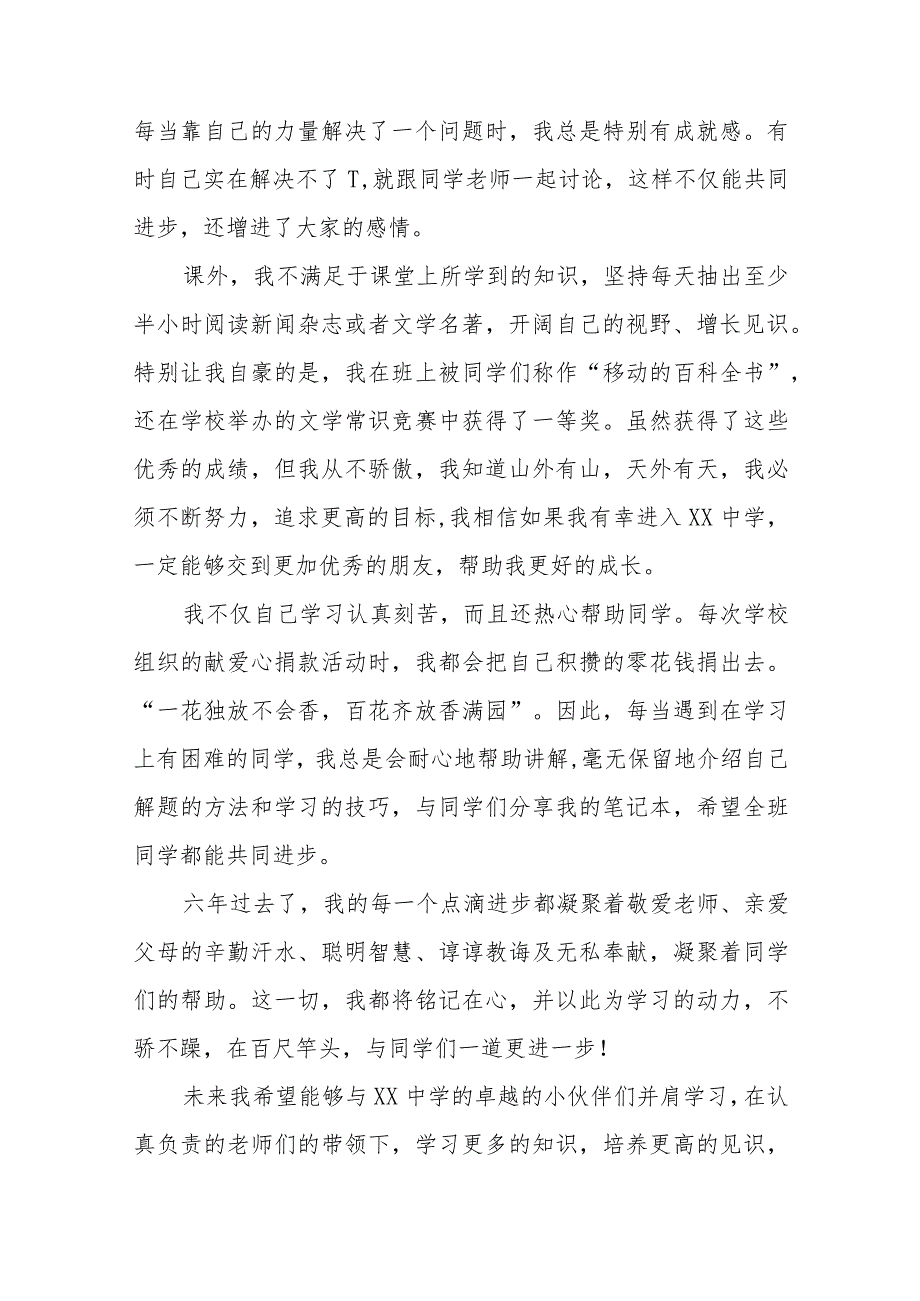 每当靠自己的力量解决了一个问题时，我总是特别有成就感。有
时自己实在解决不了 T,就跟同学老师一起讨论，这样不仅能共同
进步，还增进了大家的感情。
课外，我不满足于课堂上所学到的知识，坚持每天抽出至少
半小时阅读新闻杂志或者文学名著，开阔自己的视野、增长见识。
特别让我自豪的是，我在班上被同学们称作“移动的百科全书”，
还在学校举办的文学常识竞赛中获得了一等奖。虽然获得了这些
优秀的成绩，但我从不骄傲，我知道山外有山，天外有天，我必
须不断努力，追求更高的目标,我相信如果我有幸进入 XX 中学，
一定能够交到更加优秀的朋友，帮助我更好的成长。
我不仅自己学习认真刻苦，而且还热心帮助同学。每次学校
组织的献爱心捐款活动时，我都会把自己积攒的零花钱捐出去。
“一花独放不会香，百花齐放香满园”。因此，每当遇到在学习
上有困难的同学，我总是会耐心地帮助讲解,毫无保留地介绍自己
解题的方法和学习的技巧，与同学们分享我的笔记本，希望全班
同学都能共同进步。
六年过去了，我的每一个点滴进步都凝聚着敬爱老师、亲爱
父母的辛勤汗水、聪明智慧、谆谆教诲及无私奉献，凝聚着同学
们的帮助。这一切，我都将铭记在心，并以此为学习的动力，不
骄不躁，在百尺竿头，与同学们一道更进一步！
未来我希望能够与 XX 中学的卓越的小伙伴们并肩学习,在认
真负责的老师们的带领下，学习更多的知识，培养更高的见识，